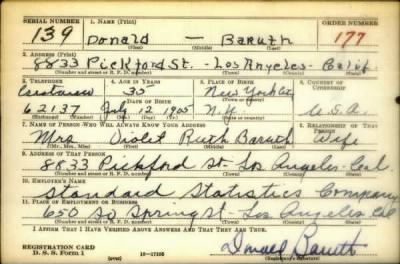 SERIAL NUMBER 1. NAME (Print) ORDER NUMBER
139 Donald — Baruth 177
(First) (Middle) (Last)
2. ADDRESS (Print)
8833 Pickford St. - Los Angeles - Calif.
(Number and street or R. F. D. number) (Town) (County) (State)
3. TELEPHONE 4. AGE IN YEARS 5. PLACE OF BIRTH 6. COUNTRY OF CITIZENSHIP
35 New York
DATE OF BIRTH (Town or county)
62137 July 12 1905 N.Y. U.S.A.
(Mo.) (Day) (Yr.) (State or country)
7. NAME OF PERSON WHO WILL ALWAYS KNOW YOUR ADDRESS 8. RELATIONSHIP OF THAT PERSON
Mrs Violet Ruth Baruth Wife
(Mr., Mrs., Miss) (First) (Middle) (Last)
9. ADDRESS OF THAT PERSON
8833 Pickford St. Los Angeles Cal.
(Number and street or R. F. D. number) (Town) (County) (State)
10. EMPLOYER'S NAME
Standard Statistics Company
11. PLACE OF EMPLOYMENT OR BUSINESS
650 So Spring St - Los Angeles Cal
(Number and street or R. F. D. number) (Town) (County) (State)
I AFFIRM THAT I HAVE VERIFIED ABOVE ANSWERS AND THAT THEY ARE TRUE.
REGISTRATION CARD
D. S. S. Form 1 (over) Donald Baruth